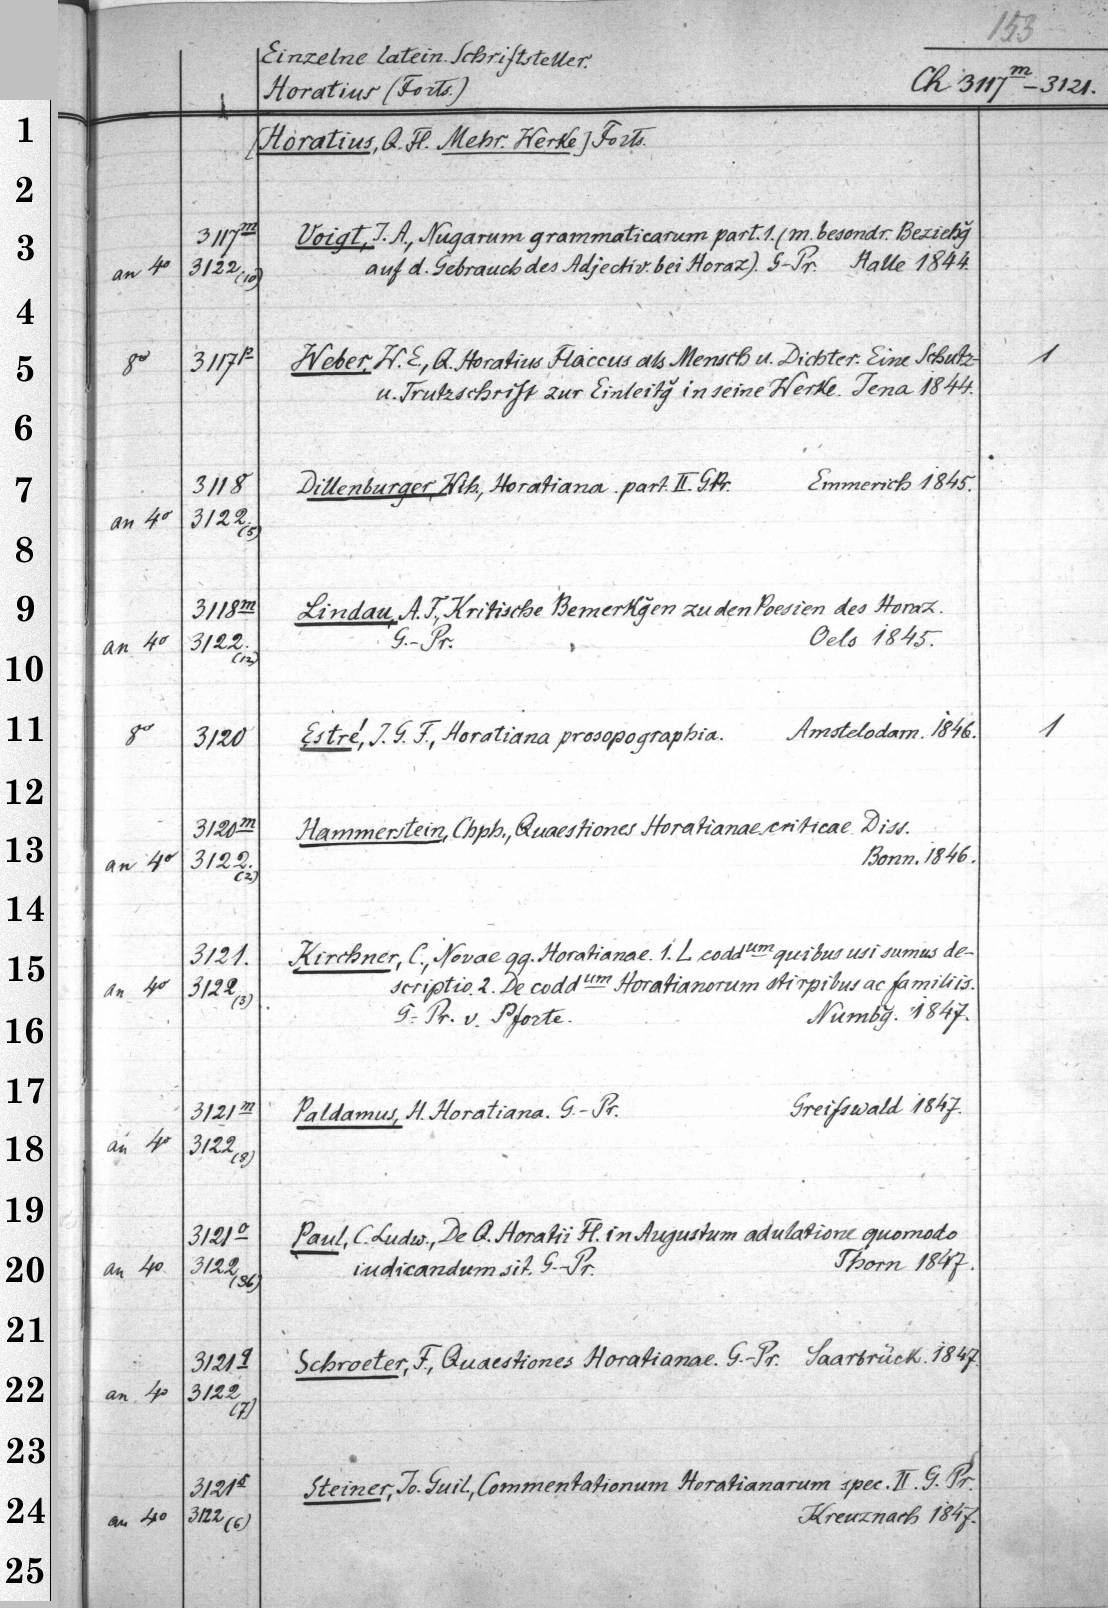 153
Einzelne latein. Schriftsteller.
Horatius (Forts.)
Ch 3117m–3121.
1
[Horatius, Q. Fl. Mehr. Werke] Forts.
2
3
3117m Voigt, J. A., Nugarum grammaticarum part. 1. (m. besondr. Beziehg̃
an 4o 3122(10) auf d. Gebrauch des Adjectiv. bei Horaz). G-Pr. Halle 1844.
4
5
8o 3117p Weber, W. E., Q. Horatius Flaccus als Mensch u. Dichter. Eine Schutz- 1
u. Trutzschrift zur Einleitg̃ in seine Werke. Jena 1844.
6
7
3118 Dillenburger, Wh., Horatiana part. II. G.Pr. Emmerich 1845.
an 4o 3122.(5)
8
9
3118m Lindau, A. F., Kritische Bemerkg̃en zu den Poesien des Horaz.
an 4o 3122.(12) G.-Pr. Oels 1845.
10
11
8o 3120 Estré, J. G. F., Horatiana prosopographia. Amstelodam. 1846. 1
12
13
3120m Hammerstein, Chph., Quaestiones Horatianae criticae. Diss.
an 4o 3122.(2) Bonn. 1846.
14
15
3121. Kirchner, C., Novae qq. Horatianae. 1. L coddum quibus usi sumus de-
an 4o 3122(3) scriptio. 2. De coddum Horatianorum stirpibus ac familiis.
16
G.- Pr. v. Pforte. Numbg̃. 1847.
17
3121m Paldamus, H. Horatiana. G.-Pr. Greifswald 1847.
18
an 4o 3122(8)
19
3121o Paul, C. Ludw., De Q. Horatii Fl. in Augustum adulatione quomodo
20
an 4o 3122(36) iudicandum sit. G.-Pr. Thorn 1847.
21
3121q Schroeter, F., Quaestiones Horatianae. G.-Pr. Saarbrück. 1847
22
an 4o 3122(7)
23
3121s Steiner, Jo. Guil., Commentationum Horatianarum spec. II. G. Pr.
24
an 4o 3122(6) Kreuznach 1847.
25